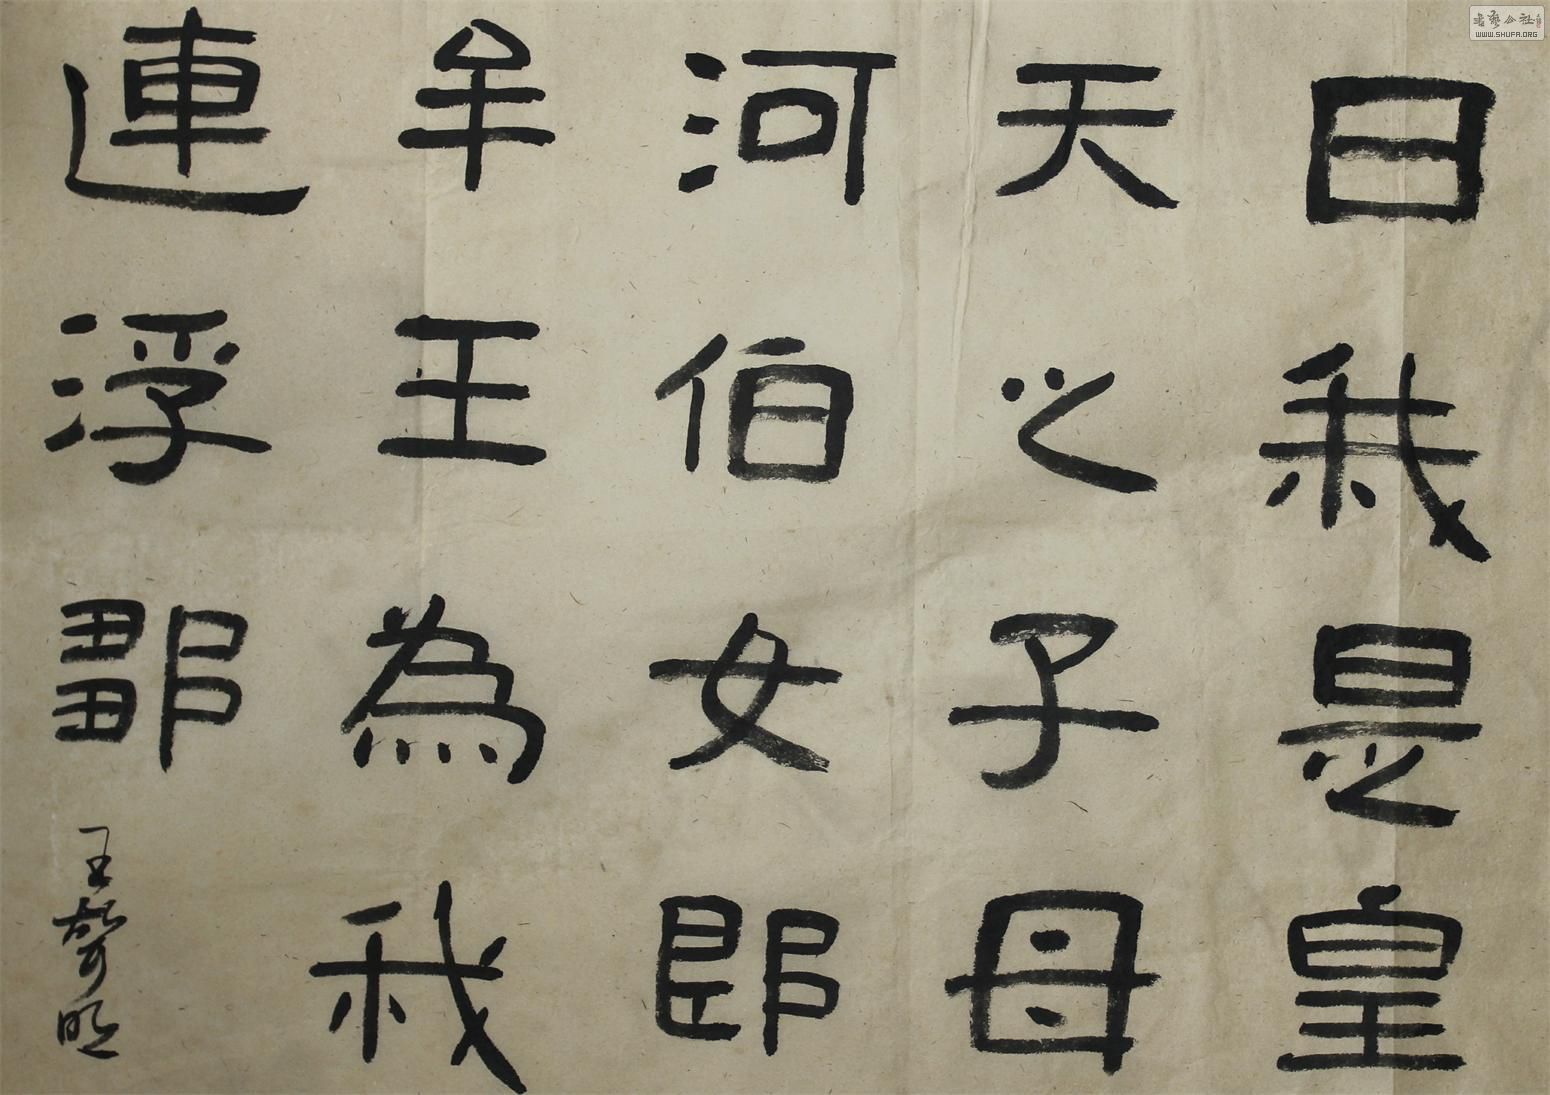 曰我是皇
天之子母
河伯女郎
牟王為我
連浮鄒
王明
書藝公社
WWW.SHUFA.ORG